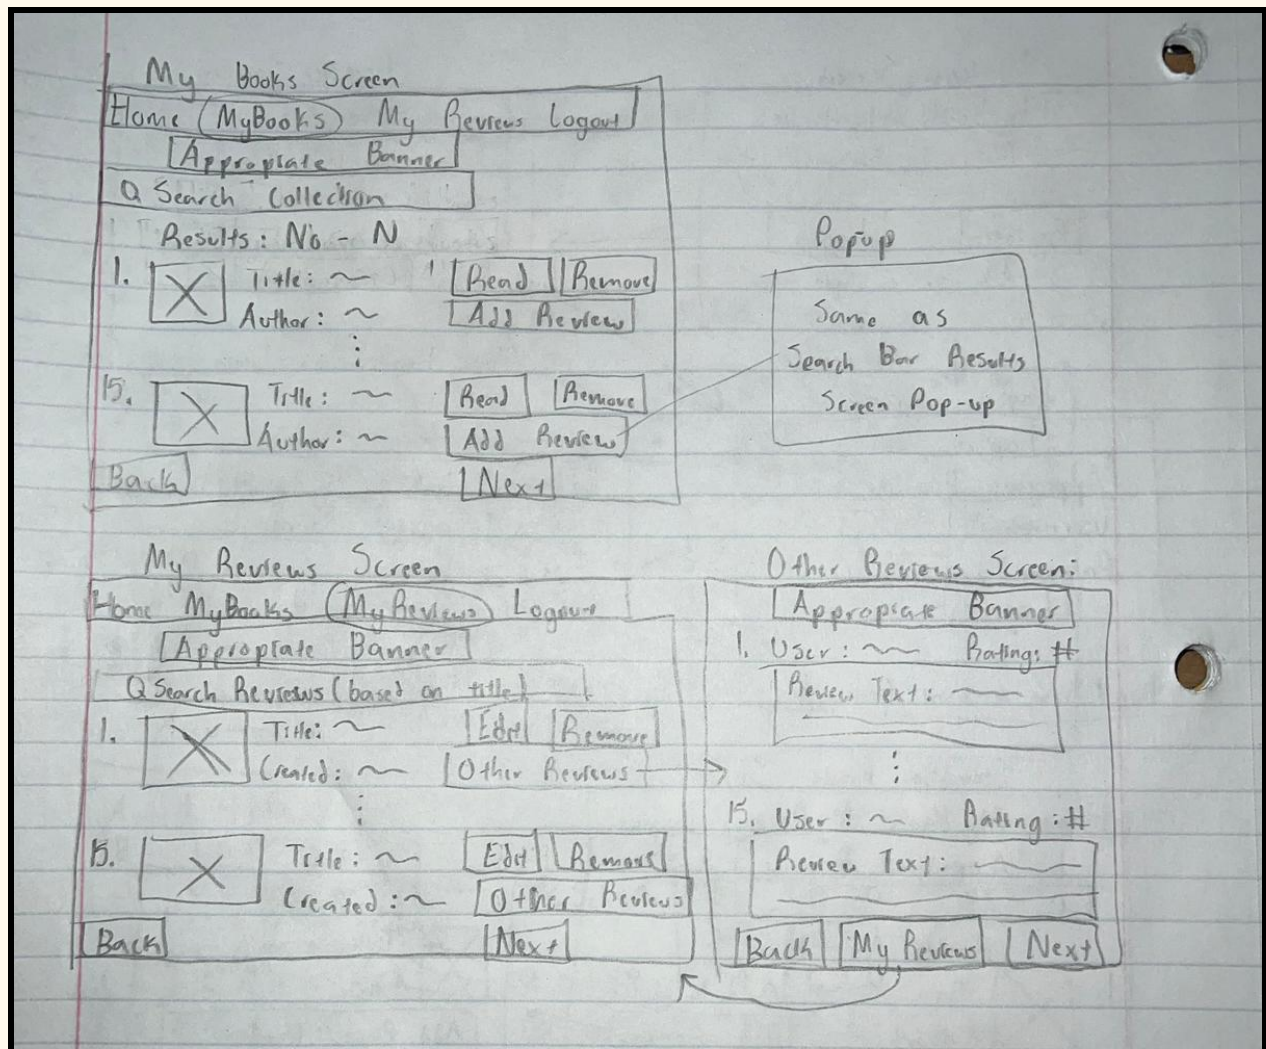 My Books Screen
Home MyBooks My Reviews Logout
Appropiate Banner
Q Search Collection
Results: No - N
1. Title: Read Remove
Author: Add Review
15. Title: Read Remove
Author: Add Review
Back Next
Popup
Same as
Search Bar Results
Screen Pop-up
My Reviews Screen
Home MyBooks MyReviews Logout
Appropiate Banner
Q Search Reviews (based on title)
1. Title: Edit Remove
Created: Other Reviews
15. Title: Edit Remove
Created: Other Reviews
Back Next
Other Reviews Screen:
Appropiate Banner
1. User: Rating: #
Review Text:
15. User: Rating: #
Review Text:
Back My Reviews Next